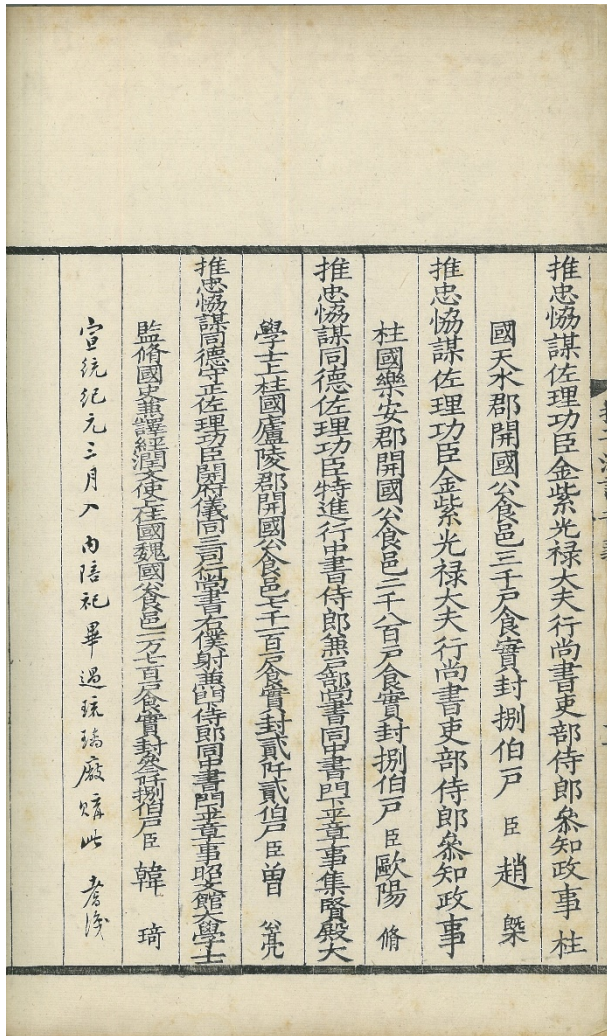 推忠恊謀佐理功臣金紫光禄大夫行尚書吏部侍郎叅知政事柱
國天水郡開國公食邑三千戶食實封捌伯戶 臣 趙 槩
推忠恊謀佐理功臣金紫光禄大夫行尚書吏部侍郎叅知政事
柱國樂安郡開國公食邑二千八百戶食實封捌伯戶 臣 歐陽 脩
推忠恊謀同德佐理功臣特進行中書侍郎兼戶部尚書同中書門下平章事集賢殿大
學士上柱國廬陵郡開國公食邑七千一百戶食實封貳阡貳伯戶 臣 曾 公亮
推忠恊謀同德守正佐理功臣開府儀同三司行尚書右僕射兼門下侍郎同中書門下平章事昭文館大學士
監脩國史兼譯經潤文使上柱國魏國公食邑一万七百戶食實封叅阡捌伯戶 臣 韓 琦
宣統紀元三月入內陪祀畢過琉璃廠購此